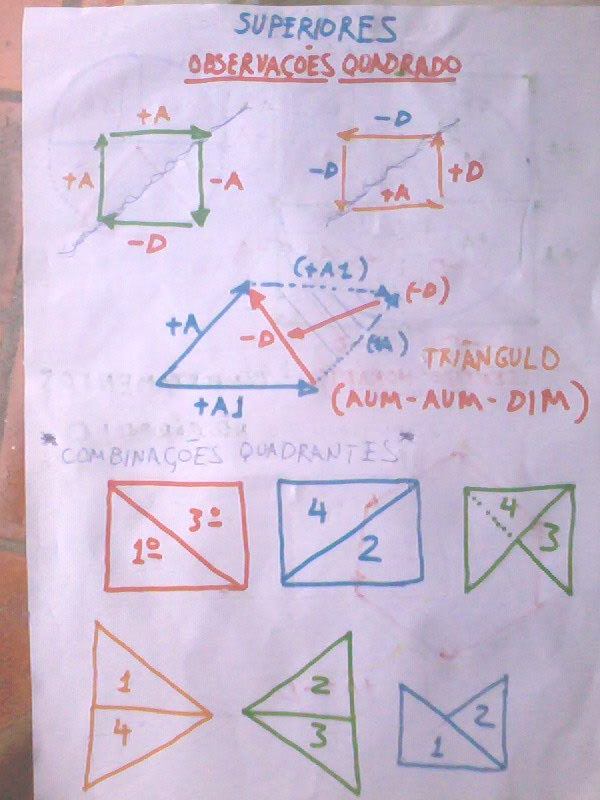 SUPERIORES
OBSERVAÇÕES QUADRADO
+A
-D
+A
-A
-D
+D
-D
+A
(+A1)
(-D)
+A
-D
(+A)
TRIÂNGULO
+A1
(AUM-AUM-DIM)
"COMBINAÇÕES QUADRANTES"
3º
1º
4
2
4
3
1
4
2
3
2
1